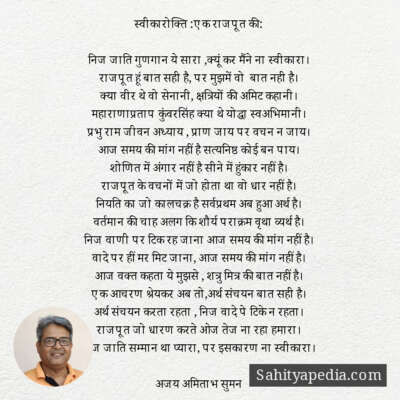 स्वीकारोक्ति :एक राजपूत की:
निज जाति गुणगान ये सारा ,क्यूं कर मैंने ना स्वीकारा।
राजपूत हूं बात सही है, पर मुझमें वो  बात नही है।
क्या वीर थे वो सेनानी, क्षत्रियों की अमिट कहानी।
महाराणाप्रताप कुंवरसिंह क्या थे योद्धा स्वअभिमानी।
प्रभु राम जीवन अध्याय , प्राण जाय पर वचन न जाय।
आज समय की मांग नहीं है सत्यनिष्ठ कोई बन पाय।
शोणित में अंगार नहीं है सीने में हुंकार नहीं है।
राजपूत के वचनों में जो होता था वो धार नहीं है।
नियति का जो कालचक्र है सर्वप्रथम अब हुआ अर्थ है।
वर्तमान की चाह अलग कि शौर्य पराक्रम वृथा व्यर्थ है।
निज वाणी पर टिक रह जाना आज समय की मांग नहीं है।
वादे पर हीं मर मिट जाना, आज समय की मांग नहीं है।
आज वक्त कहता ये मुझसे , शत्रु मित्र की बात नहीं है।
एक आचरण श्रेयकर अब तो,अर्थ संचयन बात सही है।
अर्थ संचयन करता रहता , निज वादे पे टिकेन रहता।
राजपूत जो धारण करते ओज तेज ना रहा हमारा।
जाति सम्मान था प्यारा, पर इसकारण ना स्वीकारा।
अजय अमिताभ सुमन
Sahityapedia.com